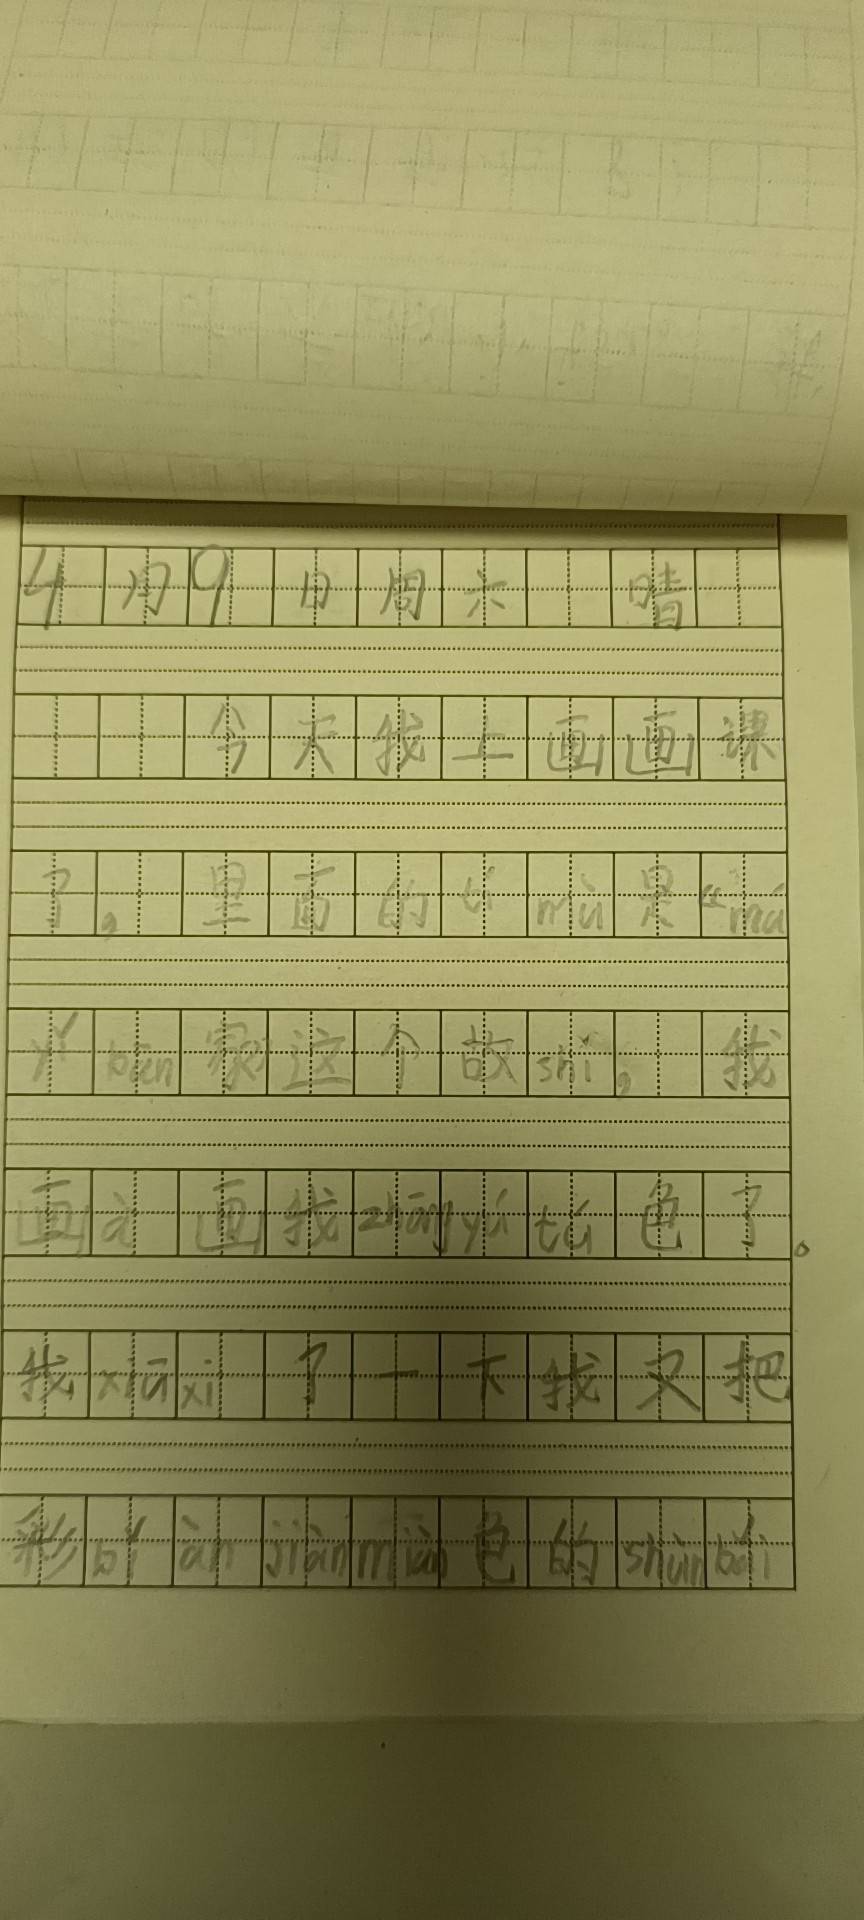 4月9日周六 晴
今天我上画画课
了，里面的tí mù是“mǎ
yǐ bān家这个故shì，我
画à画我zhāng yú tú色了。
我xiū xi了一下我又把
彩bǐ àn jiàn miàn色的shùn bǎi